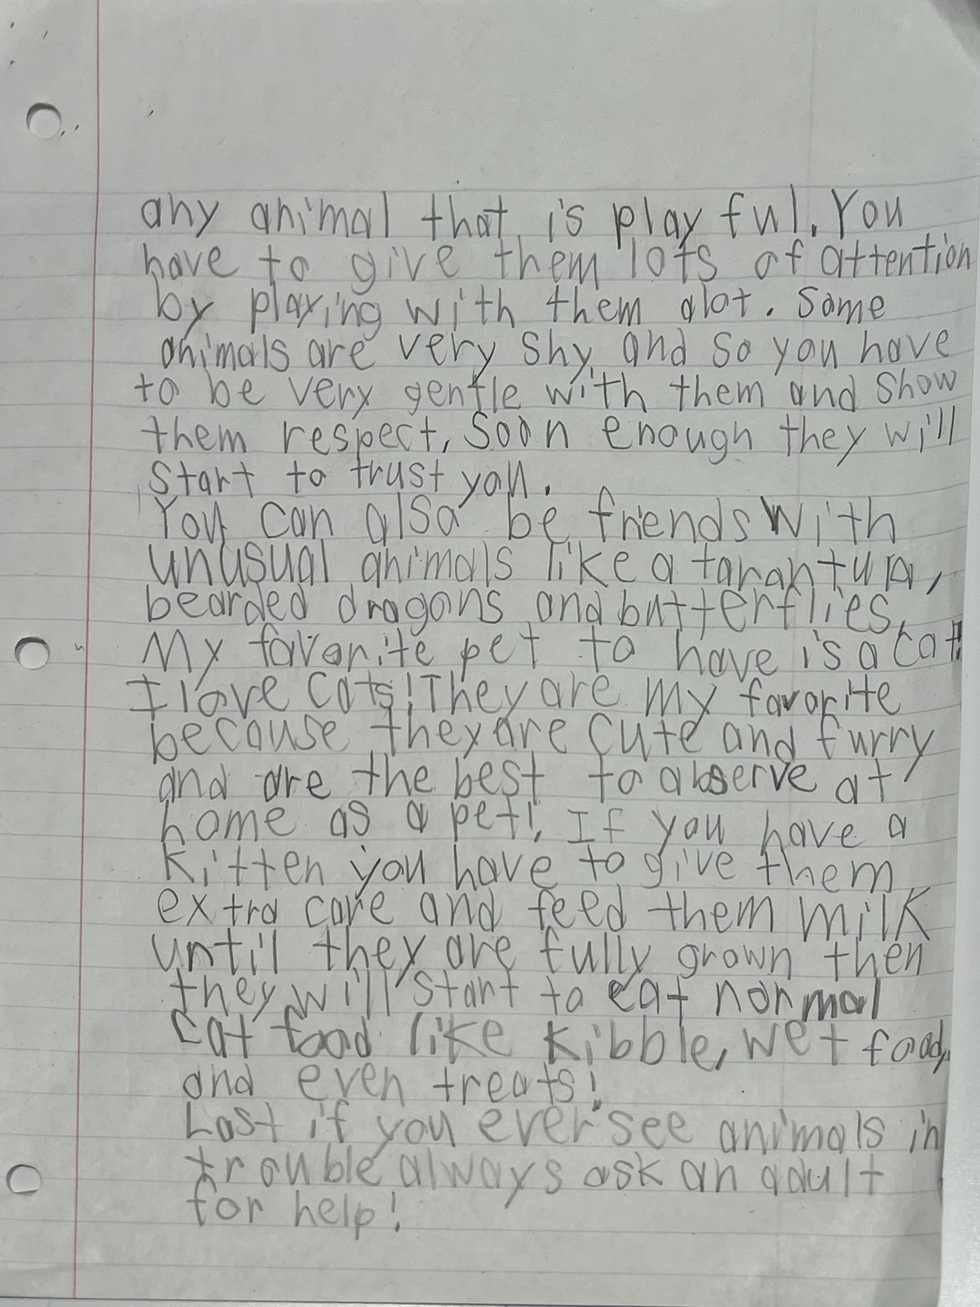 any animal that is play ful. You
have to give them lots of attention
by playing with them alot. Some
animals are very shy, and so you have
to be very gentle with them and show
them respect, soon enough they will
start to trust you.
You can also be friends with
unusual animals like a tarantura,
bearded dragons and butterflies.
My favorite pet to have is a cat!
I love cats! They are my favorite
because they are cute and furry
and are the best to observe at
home as a pet!. If you have a
kitten you have to give them
extra care and feed them milk
until they are fully grown then
they will start to eat normal
cat food like kibble, wet food,
and even treats!
Last if you ever see animals in
trouble always ask an adult
for help!